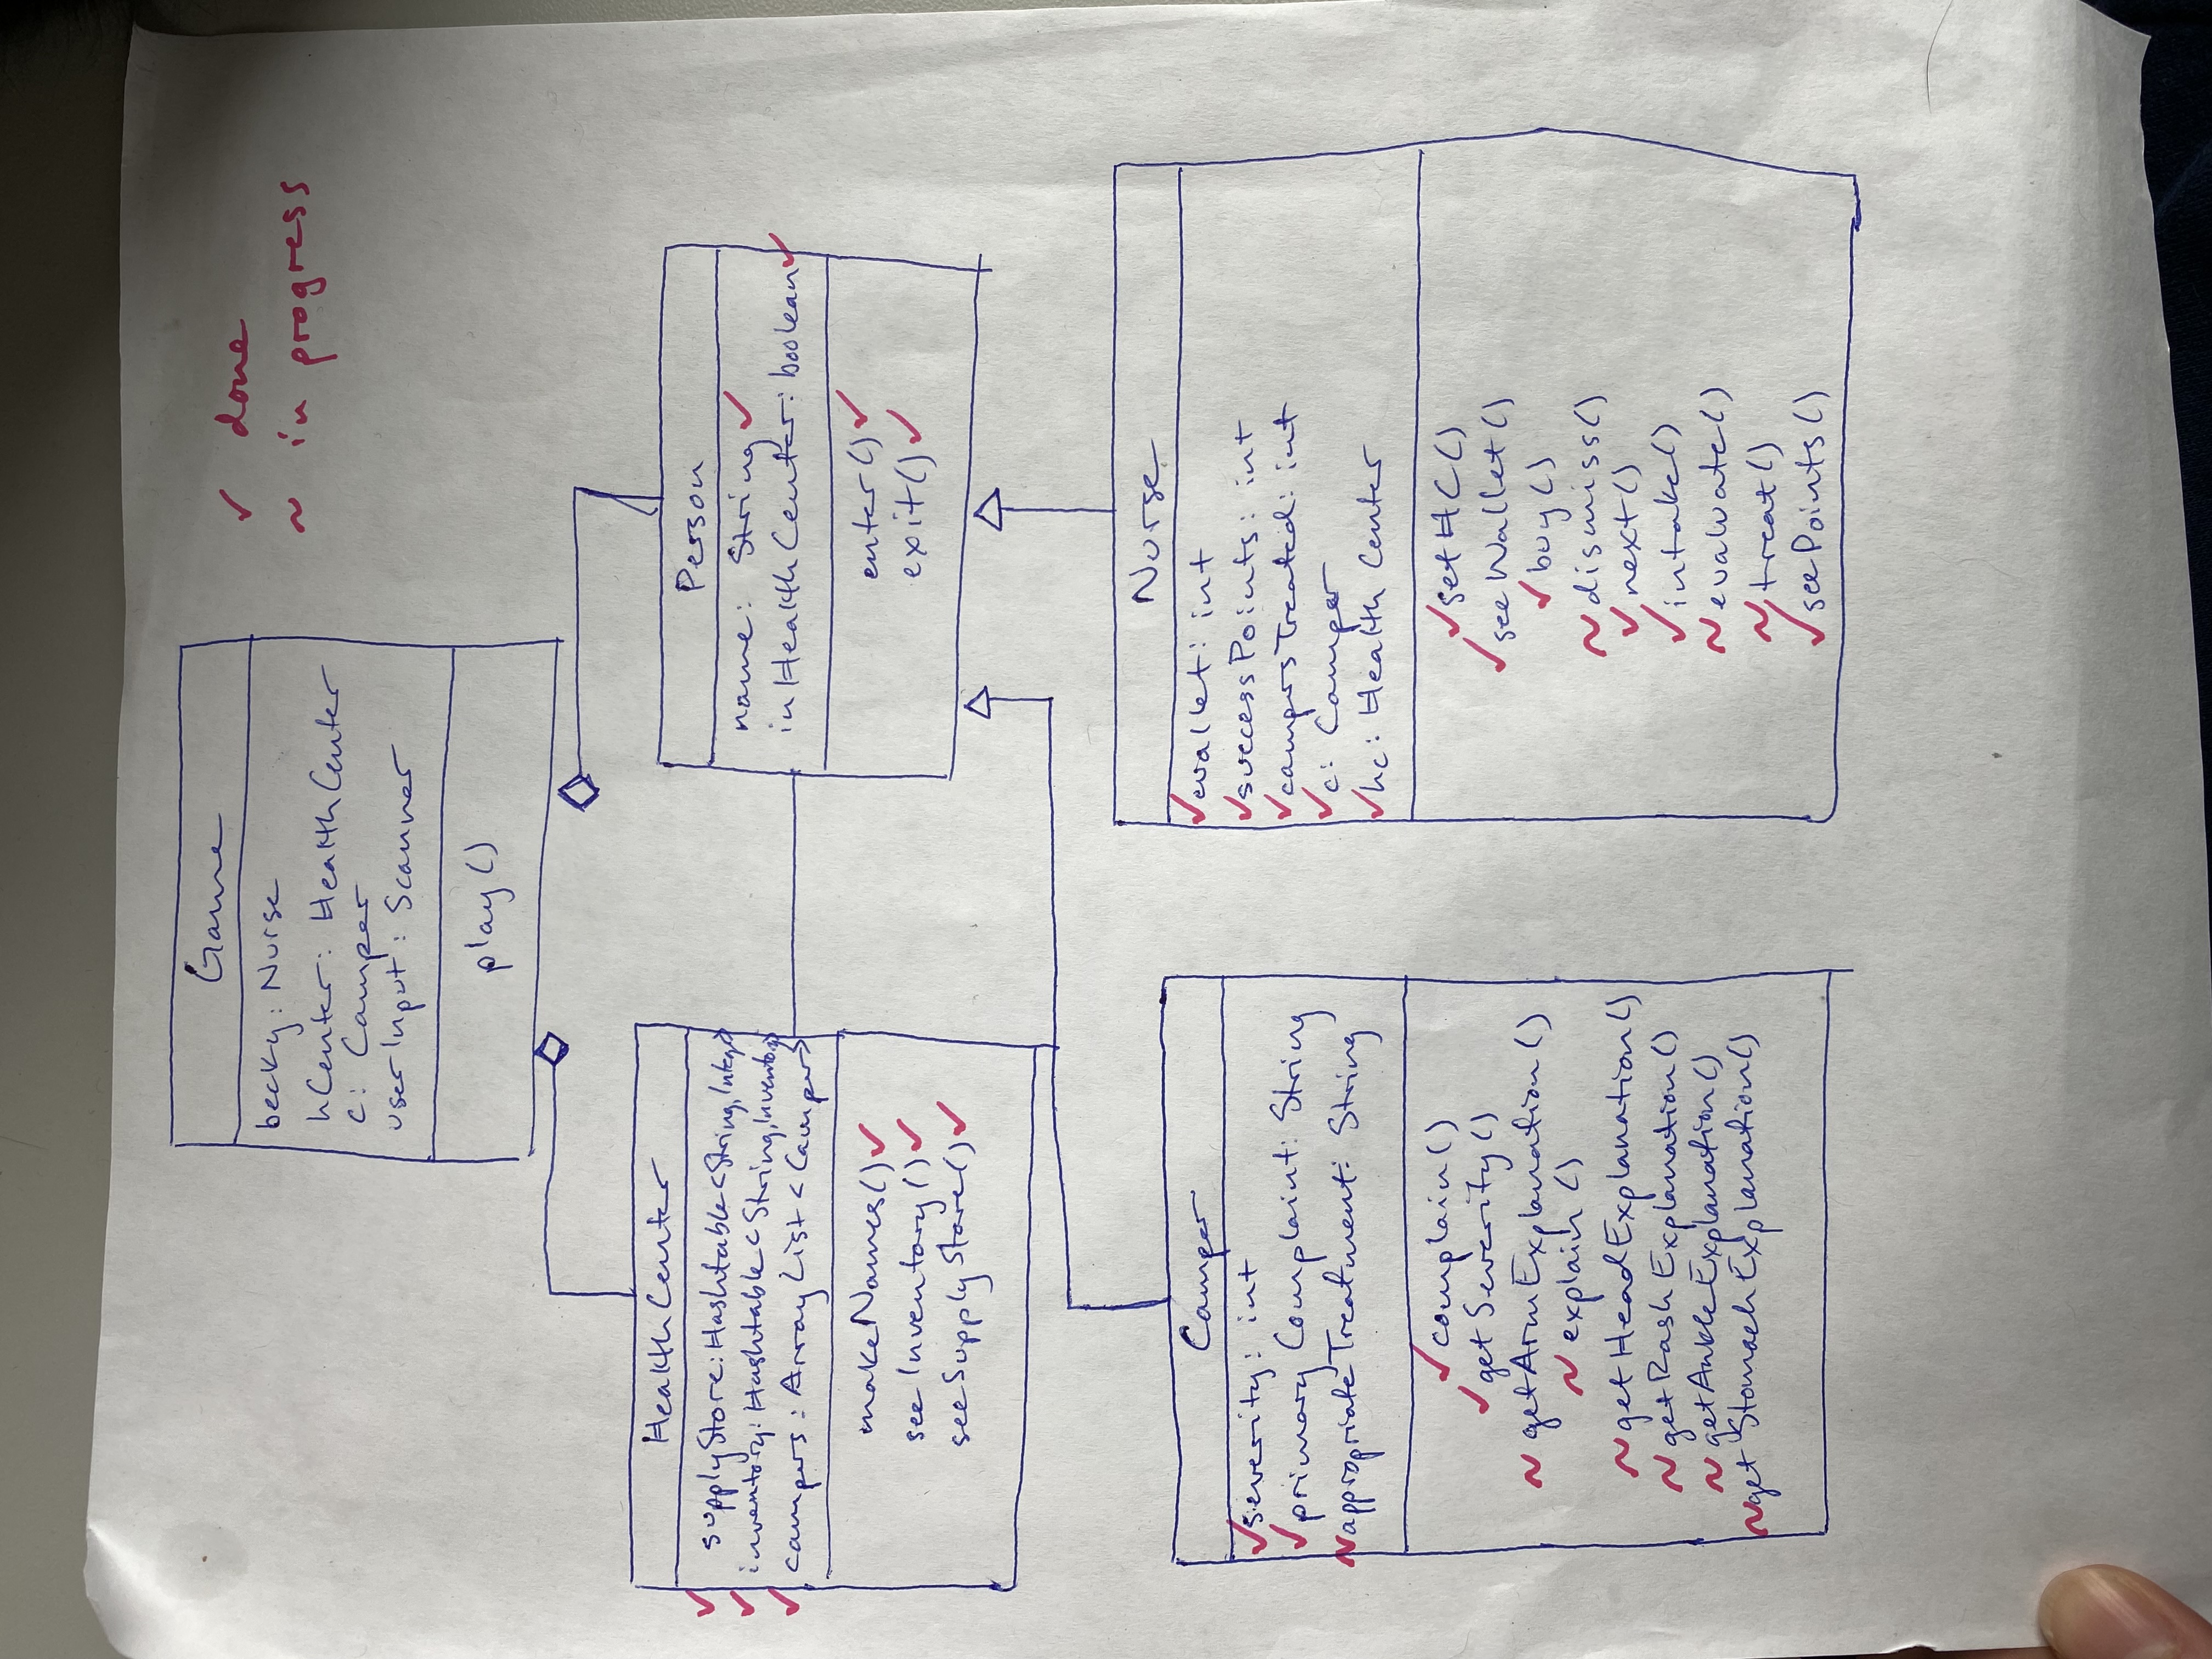 Game
becky: Nurse
hCenter: HealthCenter
c: Camper
userInput: Scanner
play()
✓ done
~ in progress
HealthCenter
✓ supplyStore: Hashtable<String, Integer>
✓ inventory: Hashtable<String, Inventory>
✓ campers: ArrayList<Camper>
makeNames() ✓
seeInventory() ✓
seeSupplyStore() ✓
Person
name: String ✓
inHealthCenter: boolean ✓
enter() ✓
exit() ✓
Camper
✓ severity: int
✓ primaryComplaint: String
~ appropriateTreatment: String
✓ complain()
✓ getSeverity()
~ getArmExplanation()
~ explain()
~ getHeadExplanation()
~ getRashExplanation()
~ getAnkleExplanation()
~ getStomachExplanation()
Nurse
✓ wallet: int
✓ successPoints: int
✓ campersTreated: int
✓ c: Camper
✓ hc: Health Center
✓ setHC()
✓ seeWallet()
✓ buy()
~ dismiss()
✓ next()
✓ intake()
~ evaluate()
~ treat()
✓ seePoints()